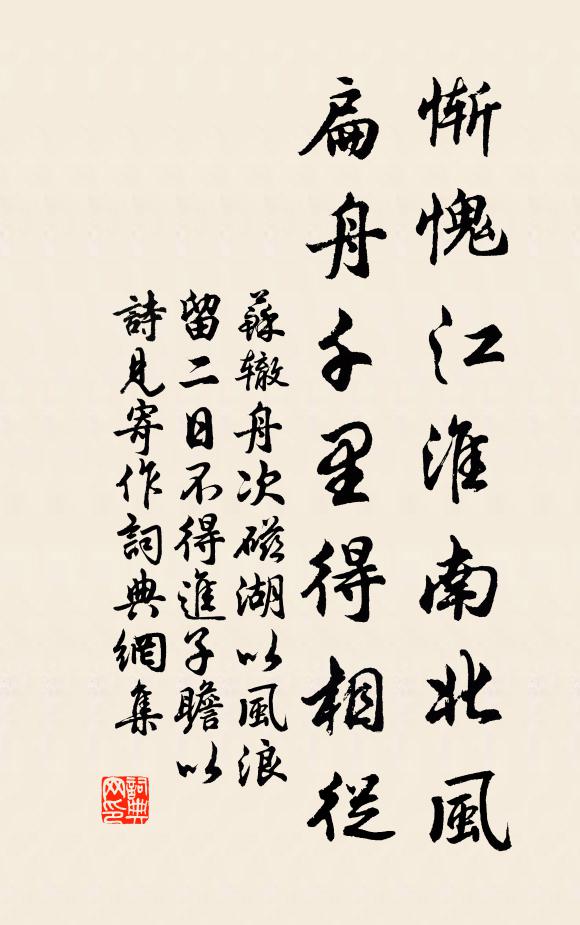 慚愧江淮南北風
扁舟千里得相從
蘇轍舟次磁湖以風浪
留二日不得進子瞻以
詩見寄作詞典網集
詞典網印